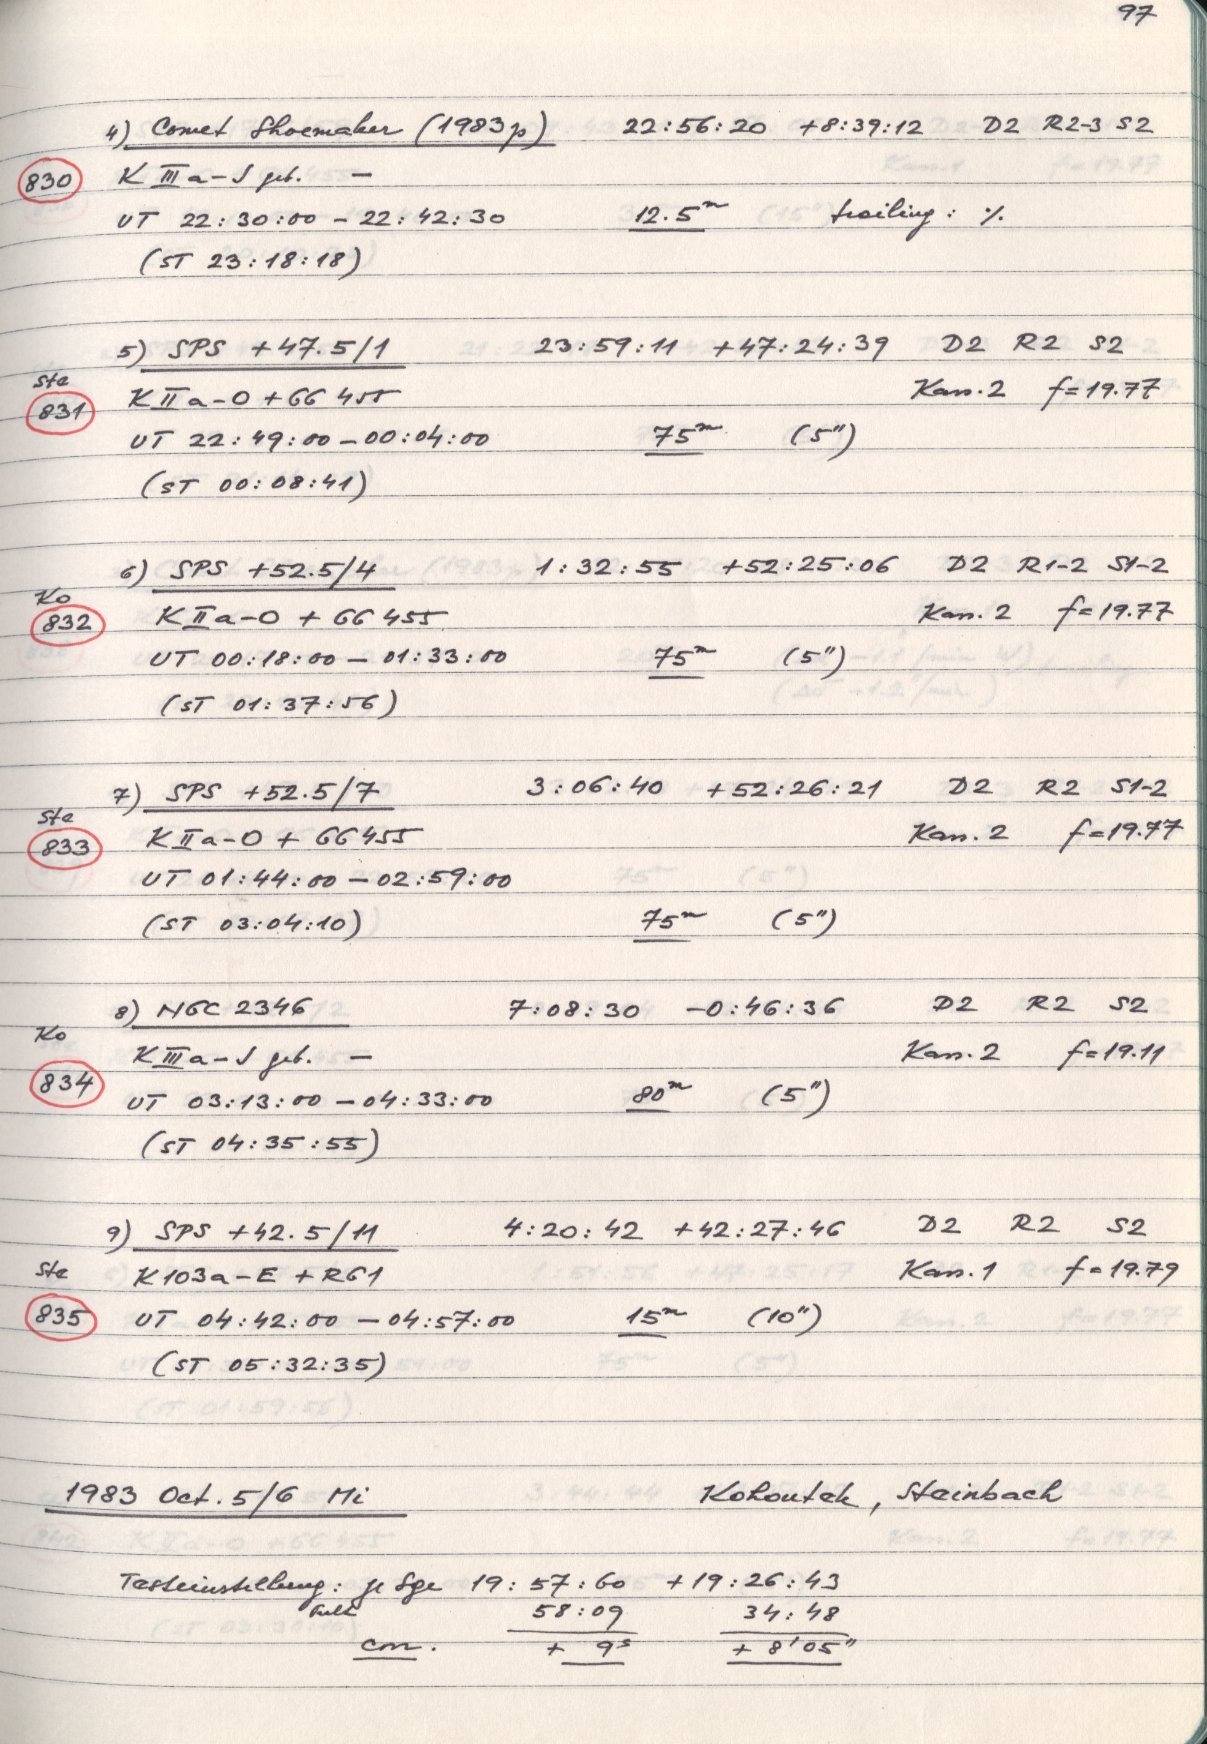 97
4) Comet Shoemaker (1983p) 22:56:20 +8:39:12 D2 R2-3 S2
830 K III a-J geb. —
UT 22:30:00 - 22:42:30 12.5ᵐ trailing: %
(ST 23:18:18)
5) SPS +47.5/1 23:59:11 +47:24:39 D2 R2 S2
Ste
831 K II a-O + GG 455 Kas. 2 f=19.77
UT 22:49:00 - 00:04:00 75ᵐ (5")
(ST 00:08:41)
6) SPS +52.5/4 1:32:55 +52:25:06 D2 R1-2 S1-2
Ko
832 K II a-O + GG 455 Kas. 2 f=19.77
UT 00:18:00 - 01:33:00 75ᵐ (5")
(ST 01:37:56)
7) SPS +52.5/7 3:06:40 +52:26:21 D2 R2 S1-2
Ste
833 K II a-O + GG 455 Kas. 2 f=19.77
UT 01:44:00 - 02:59:00
(ST 03:04:10) 75ᵐ (5")
8) NGC 2346 7:08:30 -0:46:36 D2 R2 S2
Ko
834 K III a-J geb. — Kas. 2 f=19.11
UT 03:13:00 - 04:33:00 80ᵐ (5")
(ST 04:35:55)
9) SPS +42.5/11 4:20:42 +42:27:46 D2 R2 S2
Ste K103a-E + RG1 Kas. 1 f=19.79
835 UT 04:42:00 - 04:57:00 15ᵐ (10")
(ST 05:32:35)
1983 Oct. 5/6 Mi Kohoutek, Steinbach
Testeinstellung: γ Sge 19:57:60 +19:26:43
58:09 34:48
corr. + 9ˢ + 8'05"